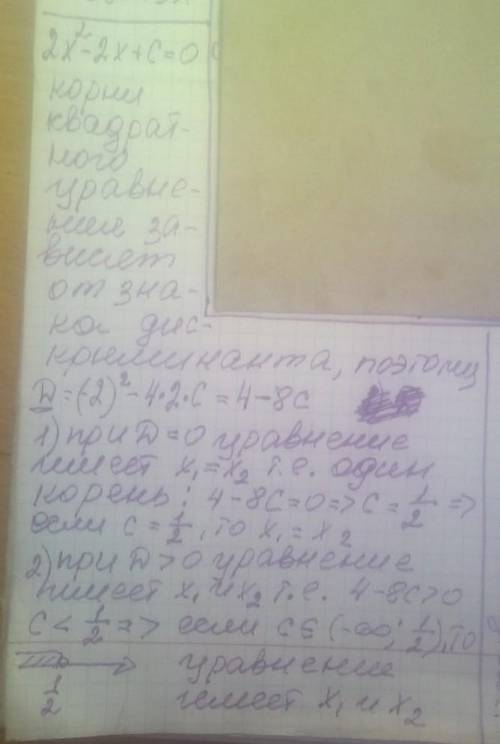 2x²-2x+c=0
корни
квадрат-
ного
уравне-
ния за-
висят
от зна-
ка дис-
криминанта, поэтому
D=(-2)²-4·2·c=4-8c
1) при D=0 уравнение
имеет x₁=x₂ т.е. один
корень: 4-8c=0=>c=1/2=>
если c=1/2, то x₁=x₂
2) при D>0 уравнение
имеет x₁ и x₂ т.е. 4-8c>0
c<1/2=> если c∈(-∞; 1/2), то
уравнение
1/2 имеет x₁ и x₂